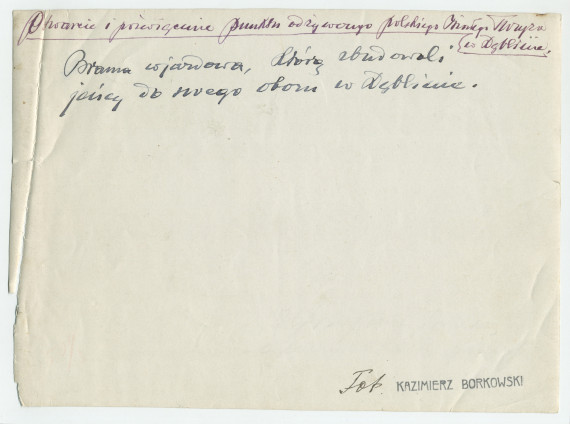 Otwarcie i poświęcenie punktu odżywczego polskiego Białego Krzyża
w Dęblinie.
Brama wjazdowa, którą zbudowali
jeńcy do swego obozu w Dęblinie.
Fot. KAZIMIERZ BORKOWSKI